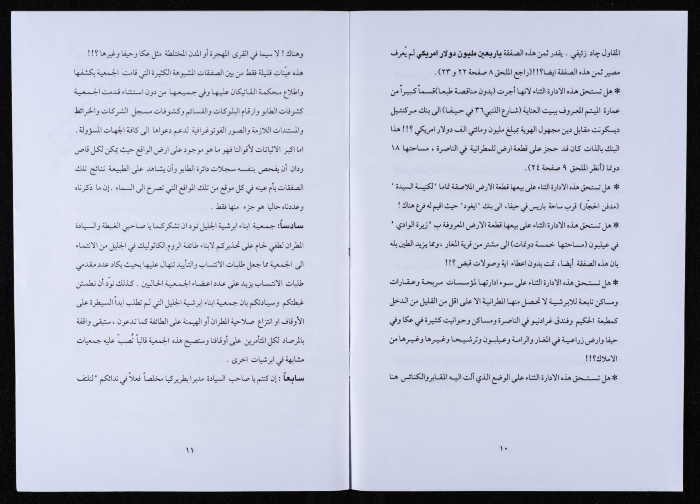 المقاول چاد زئيفي . يقدر ثمن هذه الصفقة باربعين مليون دولار امريكي لم يُعرف
مصير ثمن هذه الصفقة ايضا؟!! (راجع الملحق ٨ صفحة ٢٢ و ٢٣).
* هل تستحق هذه الادارة الثناء لانها أجرت (بدون مناقصة طبعا) قسماً كبيراً من
عمارة الميتم المعروف ببيت العناية (شارع اللنبي ٣٦ في حيفا) الى بنك مركنتيل
ديسكونت مقابل دين مجهول الهوية بمبلغ مليون ومائتي الف دولار امريكي ؟!! هذا
البنك بالذات كان قد حجز على قطعة ارض للمطرانية في الناصرة ، مساحتها ١٨
دونما (أنظر الملحق ٩ صفحة ٢٤).
* هل تستحق هذه الادارة الثناء على بيعها قطعة الارض الملاصقة تماما "لكنيسة السيدة "
(مدفن الحجّار) قرب ساحة باريس في حيفا، الى بنك "ايغود" حيث اقيم له فرع هناك !
* هل تستحق هذه الادارة الثناء على بيعها قطعة الارض المعروفة ب "زيرة الوادي "
في عيلبون (مساحتها خمسة دونمات) الى مشتر من قرية المغار، ومما يزيد الطين بله
بان هذه الصفقة أيضا، تمت بدون اعطاء اية وصولات قبض ؟!!
* هل تستحق هذه الادارة الثناء على سوء ادارتها لمؤسسات مربحة وعقارات
ومساكن تابعة للابرشية لا تحصل منها المطرانية الا على اقل من القليل من الدخل
كمطبعة الحكيم وفندق غرادنيو في الناصرة ومساكن وحوانيت كثيرة في عكا وفي
حيفا وارض زراعية في المغار والرامة وعيلبون وترشيحا وغيرها وغيرها من
الاملاك؟!!
* هل تستحق هذه الادارة الثناء على الوضع الذي آلت اليه المقابر والكنائس هنا
١٠
وهناك ! لا سيما في القرى المهجرة أو المدن المختلطة مثل عكا وحيفا وغيرها ؟!!
هذه عيّنات قليلة فقط من بين الصفقات المشبوهة الكثيرة التي قامت الجمعية بكشفها
واطلاع محكمة الڤاتيكان عليها وفي جميعها من دون استثناء قدمت الجمعية
كشوفات الطابو وارقام البلوكات والقسائم وكشوفات مسجل الشركات والخرائط
والمستندات اللازمة والصور الفوتوغرافية لدعم دعواها الى كافة الجهات المسؤولة .
اما اكبر الاثباتات لأقوالنا فهو ما هو موجود على ارض الواقع حيث يمكن لكل قاص
ودان أن يفحص بنفسه سجلات دائرة الطابو وأن يشاهد على الطبيعة نتائج تلك
الصفقات بأم عينه في كل موقع من تلك المواقع التي تصرخ الى السماء . إن ما ذكرناه
وعددناه حاليا هو جزء منها فقط .
سادساً: جمعية ابناء ابرشية الجليل تود ان تشكركما يا صاحبي الغبطة والسيادة
المطران لطفي لحام على تحذيركم لابناء طائفة الروم الكاثوليك في الجليل من الانتماء
الى الجمعية مما جعل طلبات الانتساب والتأييد تنهال عليها بحيث يكاد عدد مقدمي
طلبات الانتساب يزيد على عدد اعضاء الجمعية الحاليين . كذلك نودّ أن نطمئن
غبطتكم وسيادتكم بان جمعية ابناء ابرشية الجليل التي لم تطلب ابداً السيطرة على
الأوقاف او انتزاع صلاحية المطران أو الهيمنة على الطائفة كما تدعون ، ستبقى واقفة
بالمرصاد لكل المتأمرين على أوقافنا وستصبح هذه الجمعية قالباً تُصبّ عليه جمعيات
مشابهة في ابرشيات اخرى .
سابعاً : إن كنتم يا صاحب السيادة مدبرا بطريركيا مخلصاً فعلاً في ندائكم "لنلتف
١١